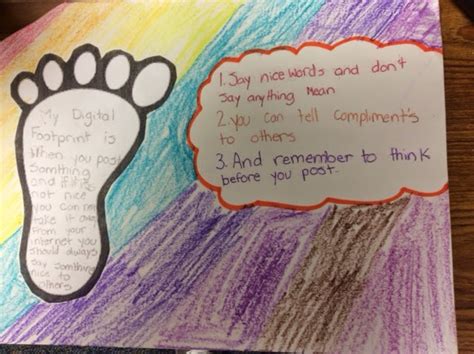 My Digital
Footprint is
When you post
Somthing
and if it's
not nice
you can not
take it away
from your
internet you
should always
say somthing
nice to
others
1. Say nice words and don't
say anything mean
2. you can tell compliment's
to others
3. And remember to think
before you post.